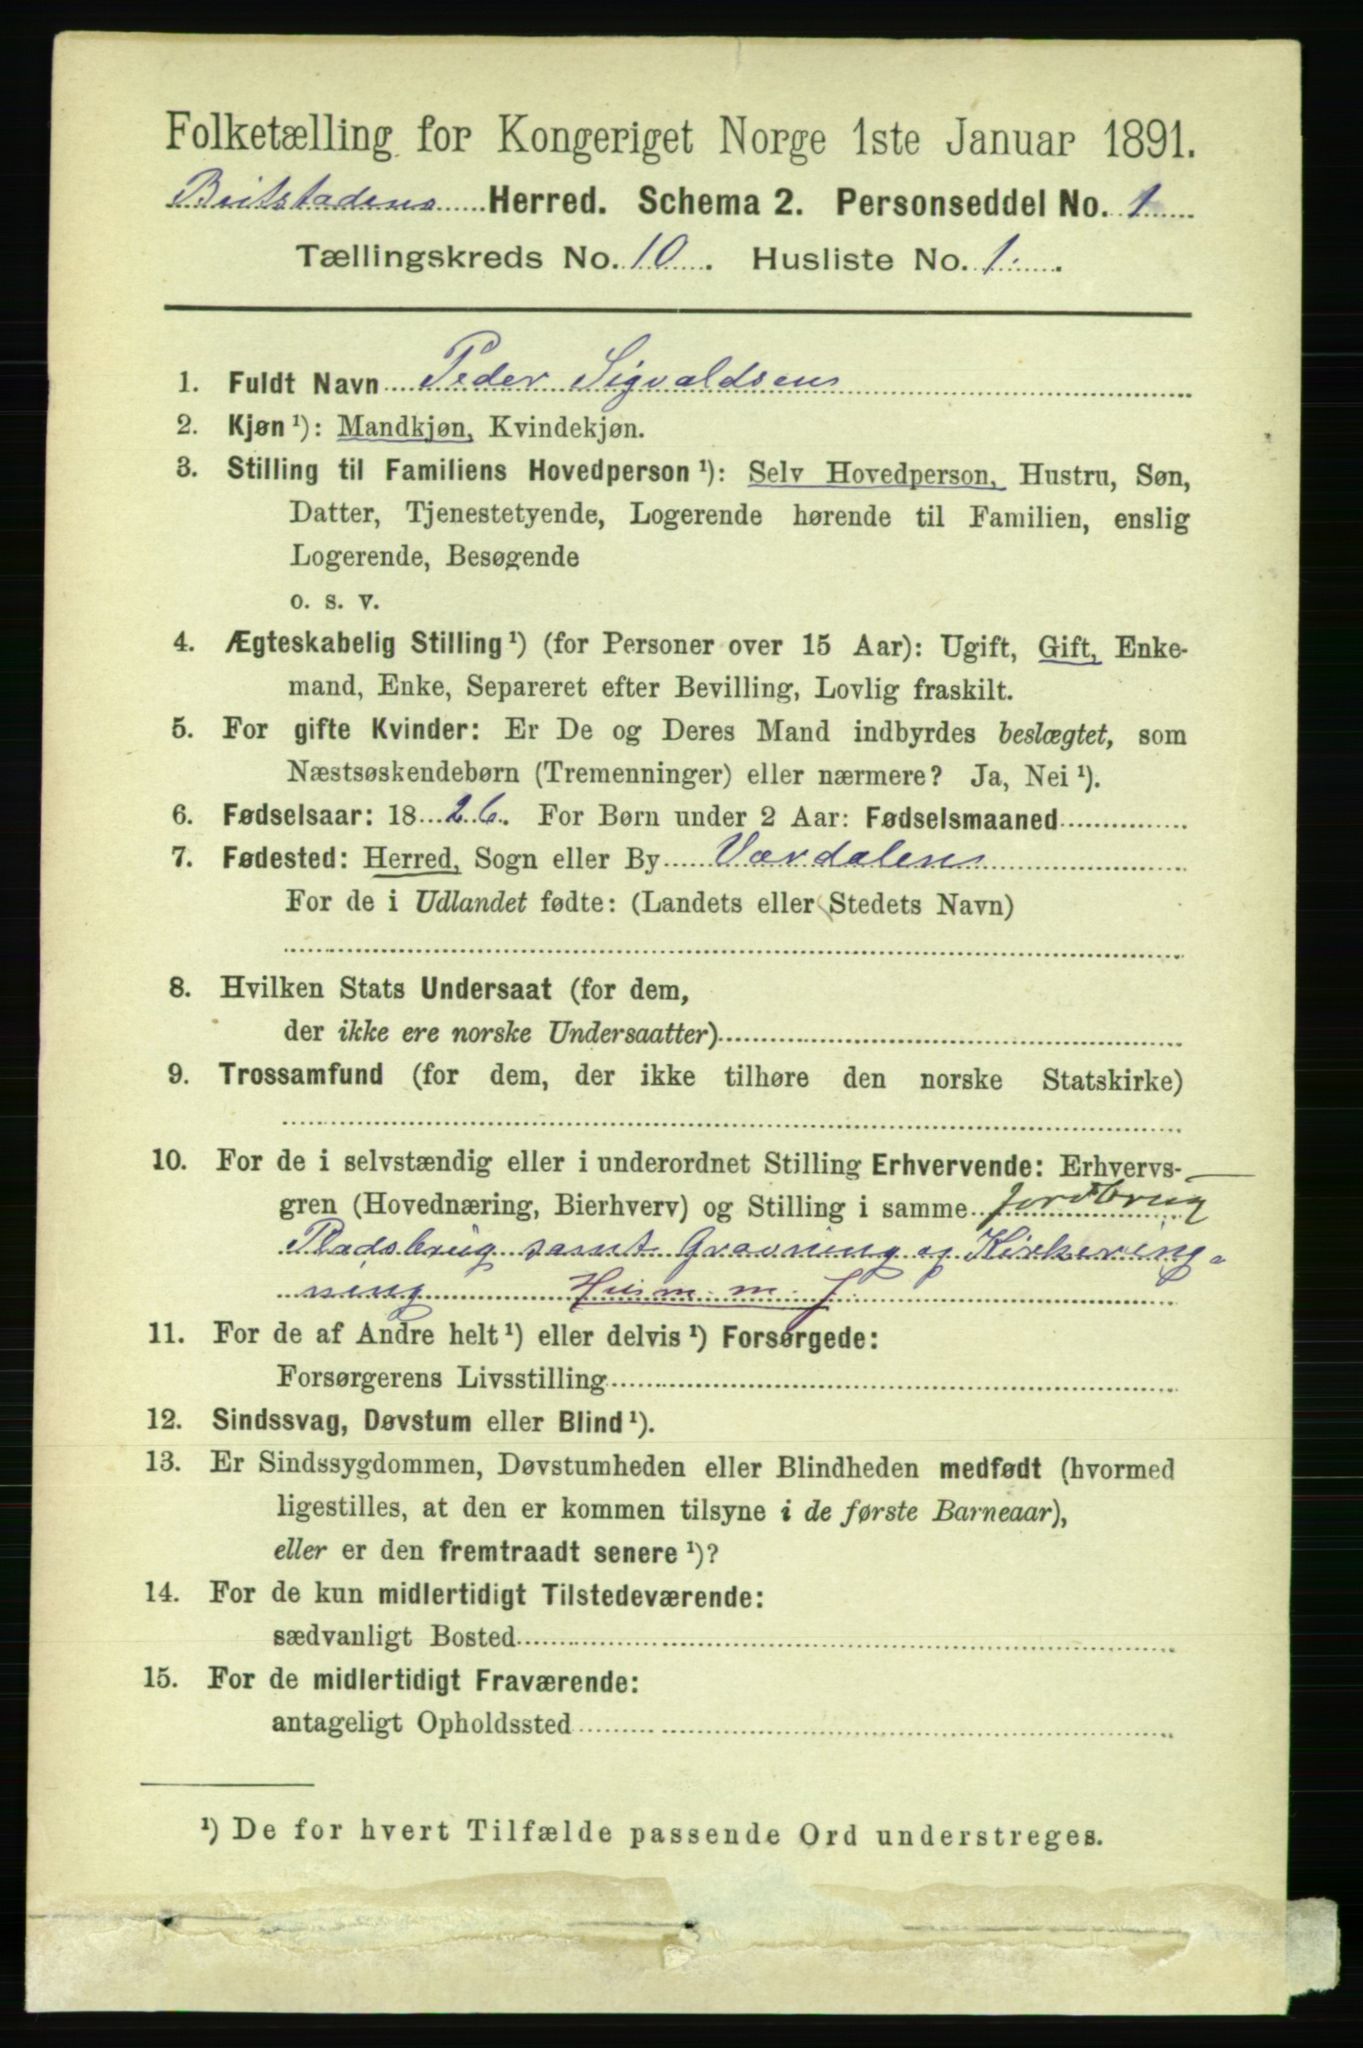 Folketælling for Kongeriget Norge 1ste Januar 1891.
Beitstadens Herred. Schema 2. Personseddel No. 1
Tællingskreds No. 10. Husliste No. 1.
1. Fuldt Navn Peder Sigvaldsen
2. Kjøn ¹): Mandkjøn, Kvindekjøn.
3. Stilling til Familiens Hovedperson ¹): Selv Hovedperson, Hustru, Søn,
Datter, Tjenestetyende, Logerende hørende til Familien, enslig
Logerende, Besøgende
o. s. v.
4. Ægteskabelig Stilling ¹) (for Personer over 15 Aar): Ugift, Gift, Enke-
mand, Enke, Separeret efter Bevilling, Lovlig fraskilt.
5. For gifte Kvinder: Er De og Deres Mand indbyrdes beslægtet, som
Næstsøskendebørn (Tremenninger) eller nærmere? Ja, Nei ¹).
6. Fødselsaar: 1826. For Børn under 2 Aar: Fødselsmaaned
7. Fødested: Herred, Sogn eller By Værdalen
For de i Udlandet fødte: (Landets eller Stedets Navn)
8. Hvilken Stats Undersaat (for dem,
der ikke ere norske Undersaatter)
9. Trossamfund (for dem, der ikke tilhøre den norske Statskirke)
10. For de i selvstændig eller i underordnet Stilling Erhvervende: Erhvervs-
gren (Hovednæring, Bierhverv) og Stilling i samme Jordbrug
Pladsbrug samt Gravning og Kirkering-
ning Husm. m. J.
11. For de af Andre helt ¹) eller delvis ¹) Forsørgede:
Forsørgerens Livsstilling
12. Sindssvag, Døvstum eller Blind ¹).
13. Er Sindssygdommen, Døvstumheden eller Blindheden medfødt (hvormed
ligestilles, at den er kommen tilsyne i de første Barneaar),
eller er den fremtraadt senere ¹)?
14. For de kun midlertidigt Tilstedeværende:
sædvanligt Bosted
15. For de midlertidigt Fraværende:
antageligt Opholdssted
¹) De for hvert Tilfælde passende Ord understreges.